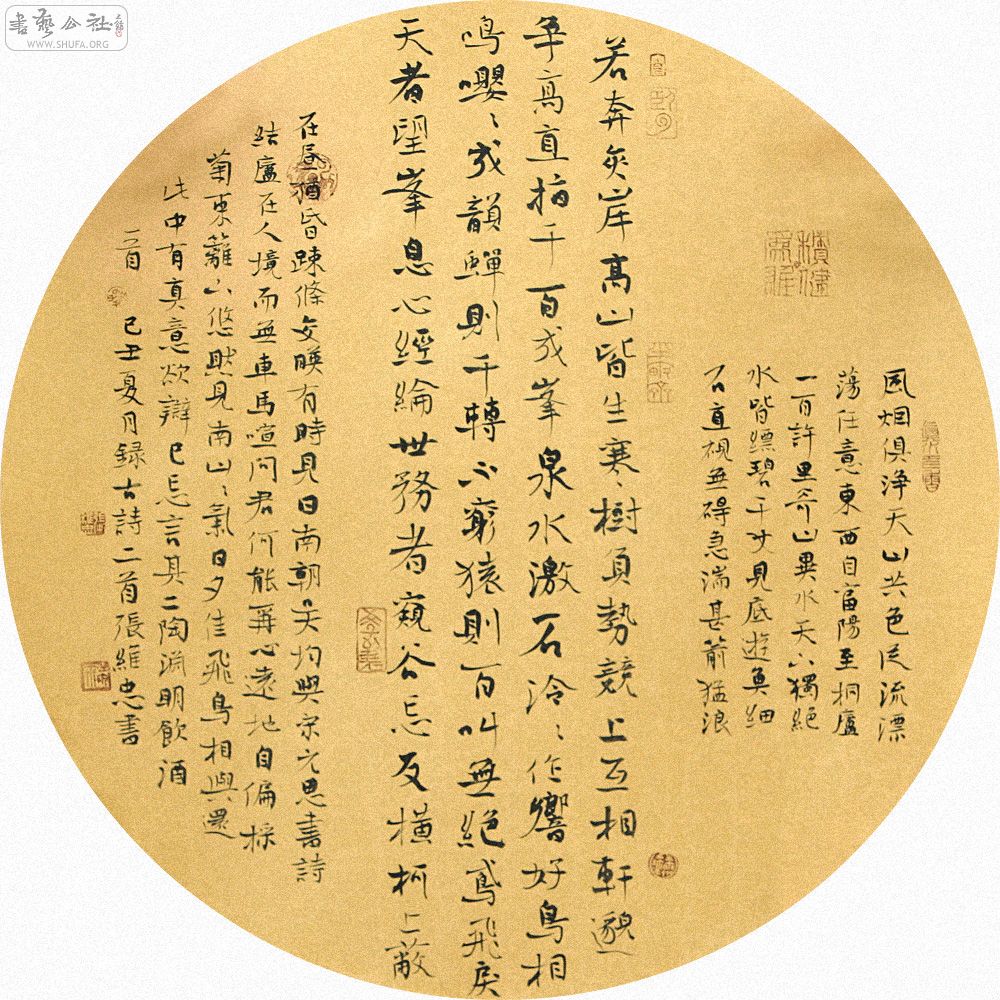 書藝公社
WWW.SHUFA.ORG
風烟俱淨天山共色從流漂
蕩任意東西自富陽至桐廬
一百許里奇山異水天下獨絕
水皆縹碧千丈見底遊魚細
石直視無碍急湍甚箭猛浪
若奔夾岸高山皆生寒樹負勢競上互相軒邈
爭高直指千百成峯泉水激石泠、作響好鳥相
鳴嚶、成韻蟬則千轉不窮猿則百叫無絕鳶飛戾
天者望峯息心經綸世務者窺谷忘反橫柯上蔽
在昼猶昏疎條交映有時見日南朝吴均與宋元思書詩
結廬在人境而無車馬喧問君何能爾心遠地自偏採
菊東籬下悠然見南山、氣日夕佳飛鳥相與還
此中有真意欲辯已忘言其二陶淵明飲酒
一首 己丑夏月録古詩二首張維忠書